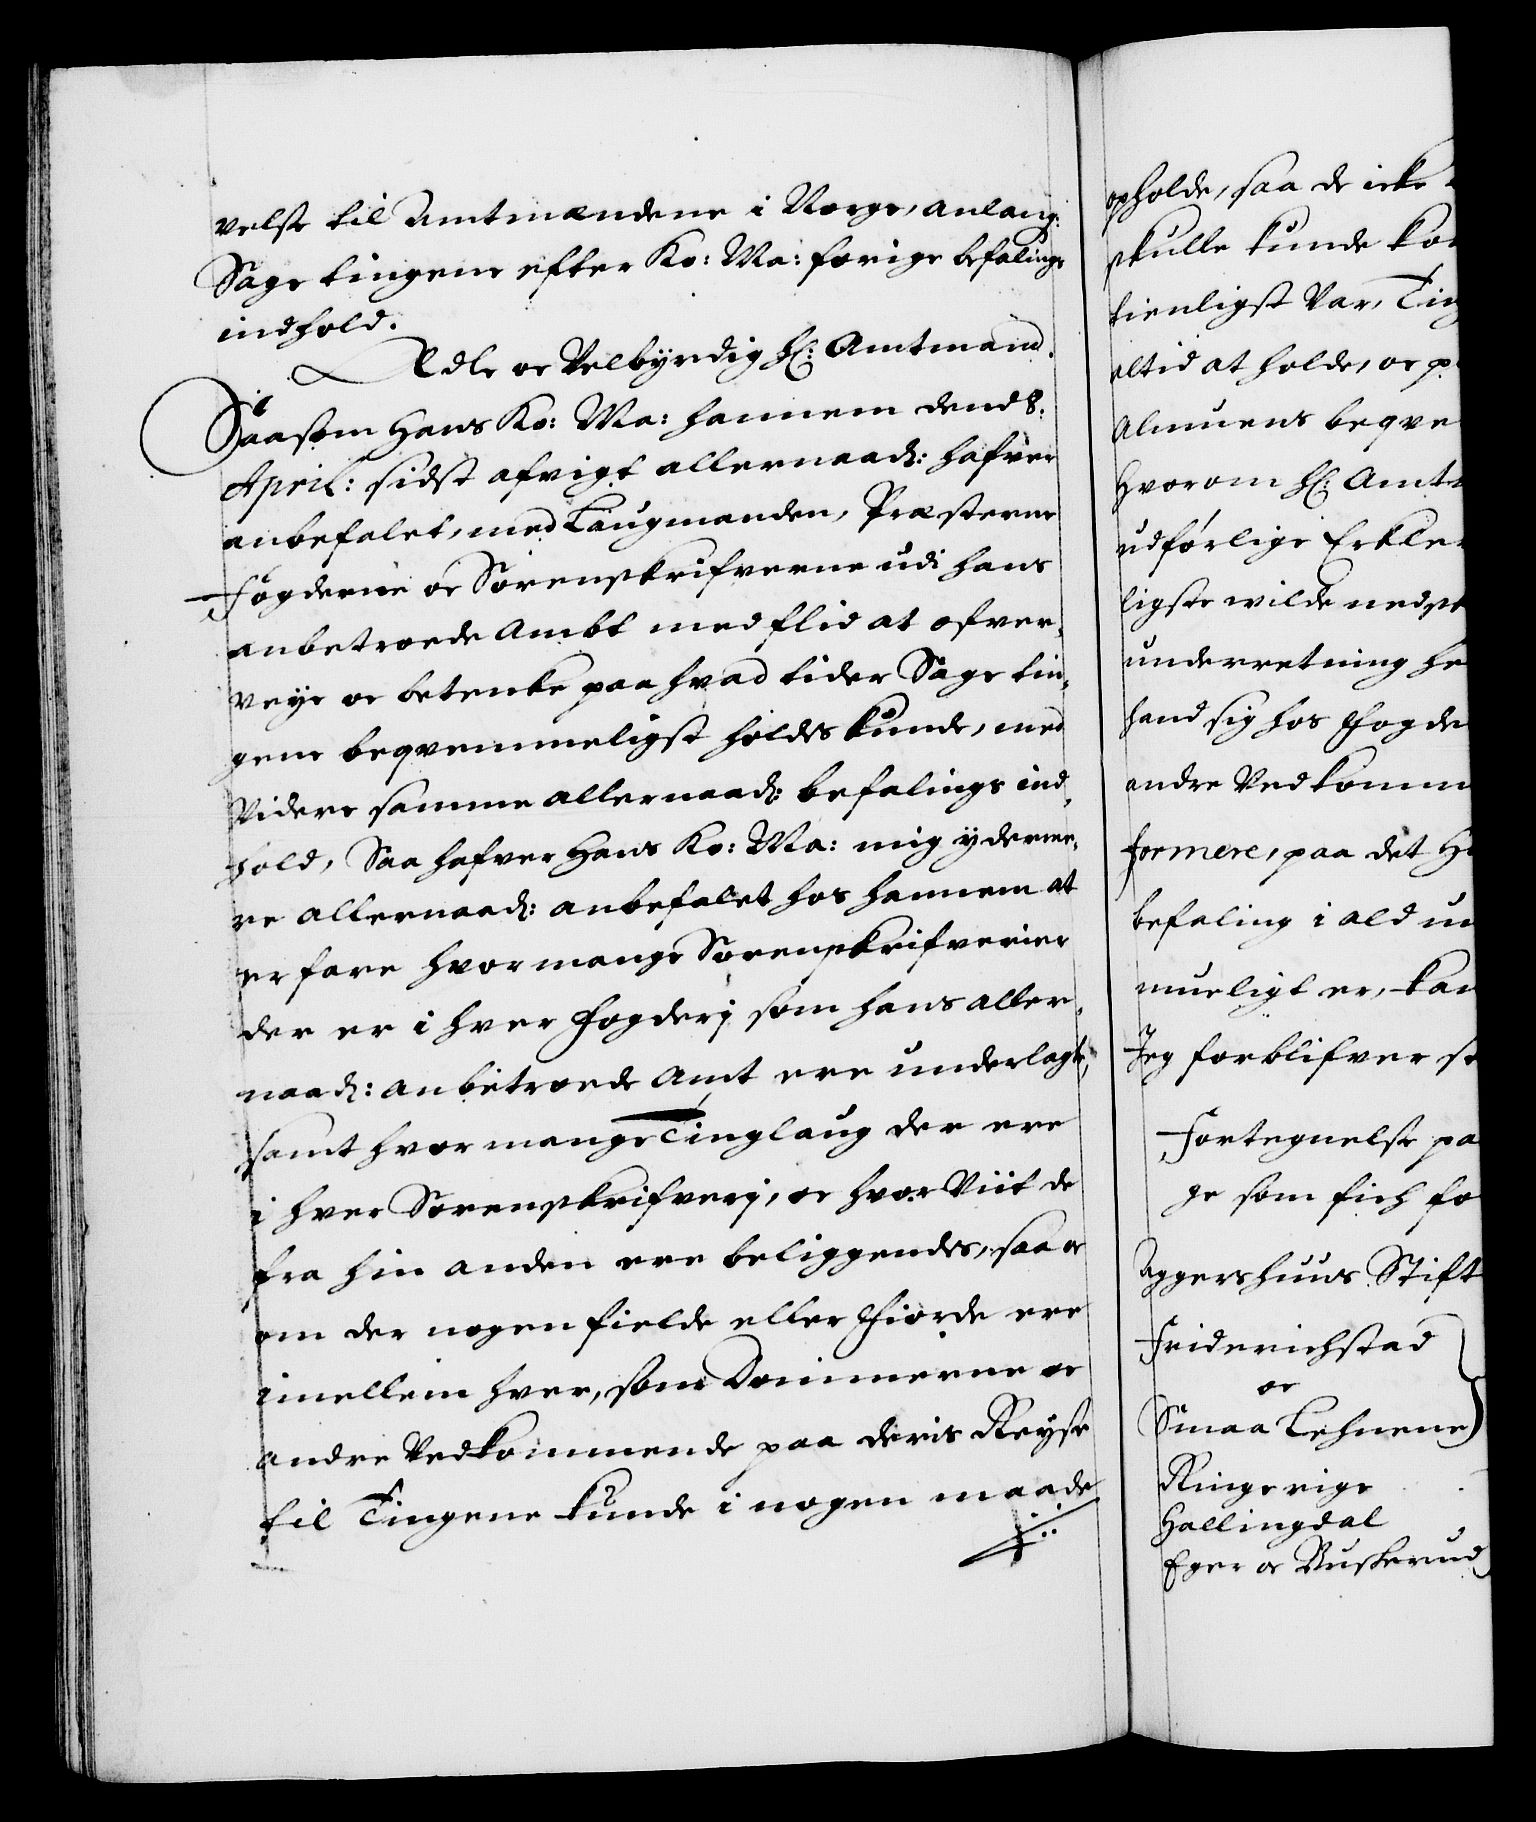 velse til Amtmændene i Norge, anlang:
Sage tingene efter Ko: Ma: forige befalings
indhold.
Ædle oc Velbyrdig Hr: Amtmand.
Saasom Hans Ko: Ma: hannem dend 8.
April: sidst afvigt allernaad: hafver
anbefalet, med Laugmanden, Præsterne
Fogderne oc Sorenskrifverne udi hans
anbetroede Ambt med flid at ofver,
veye oc betenke paa hvad tider Sage tin,
gene beqvemmeligst holdes kunde, med
Videre samme allernaad: befalings ind,
hold, Saa hafver Hans Ko: Ma: mig yderme,
re allernaad: anbefalet hos hannem at
erfare hvor mange Sorenskrifverier
der er i hver Fogderj som hans aller,
naad: anbetroede Amt ere underlagt,
samt hvor mange Tinglaug der ere
i hver Sorenskrifverj, oc hvor Viit de
fra hin anden ere beliggendes, saa oc
om der nogen fielde eller Fiorde ere
imellem hver, som Dommerne oc
andre Vedkommende paa deris Reyse
til Tingene kunde i nogen maade
opholde, saa de icke
skulle kunde kom
tienligst Var, Ting
altid at holde, oc p
Almuens beqve
Hvorom Hr: Amt
udførlige Erkle
ligste wilde nedse
underretning he
hand sig hos Fogde
andre Vedkomm
formere, paa det H
befaling i ald un
mueligt er, kan
Jeg forblifver se
Fortegnelse pa
ge som fich fo
Aggershuus Stift
Friderichstad
oc
Smaa Lehnene
Ringerige
Hallingdal
Eger oc Buskerud